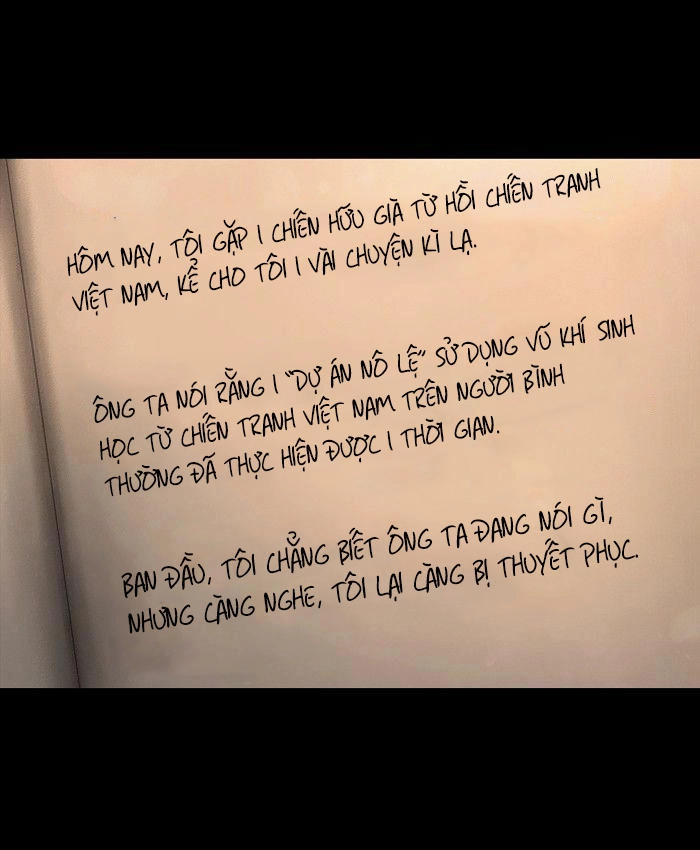 HÔM NAY, TÔI GẶP 1 CHIẾN HỮU GIÀ TỪ HỒI CHIẾN TRANH
VIỆT NAM, KỂ CHO TÔI 1 VÀI CHUYỆN KÌ LẠ.
ÔNG TA NÓI RẰNG 1 "DỰ ÁN NÔ LỆ" SỬ DỤNG VŨ KHÍ SINH
HỌC TỪ CHIẾN TRANH VIỆT NAM TRÊN NGƯỜI BÌNH
THƯỜNG ĐÃ THỰC HIỆN ĐƯỢC 1 THỜI GIAN.
BAN ĐẦU, TÔI CHẲNG BIẾT ÔNG TA ĐANG NÓI GÌ,
NHƯNG CÀNG NGHE, TÔI LẠI CÀNG BỊ THUYẾT PHỤC.